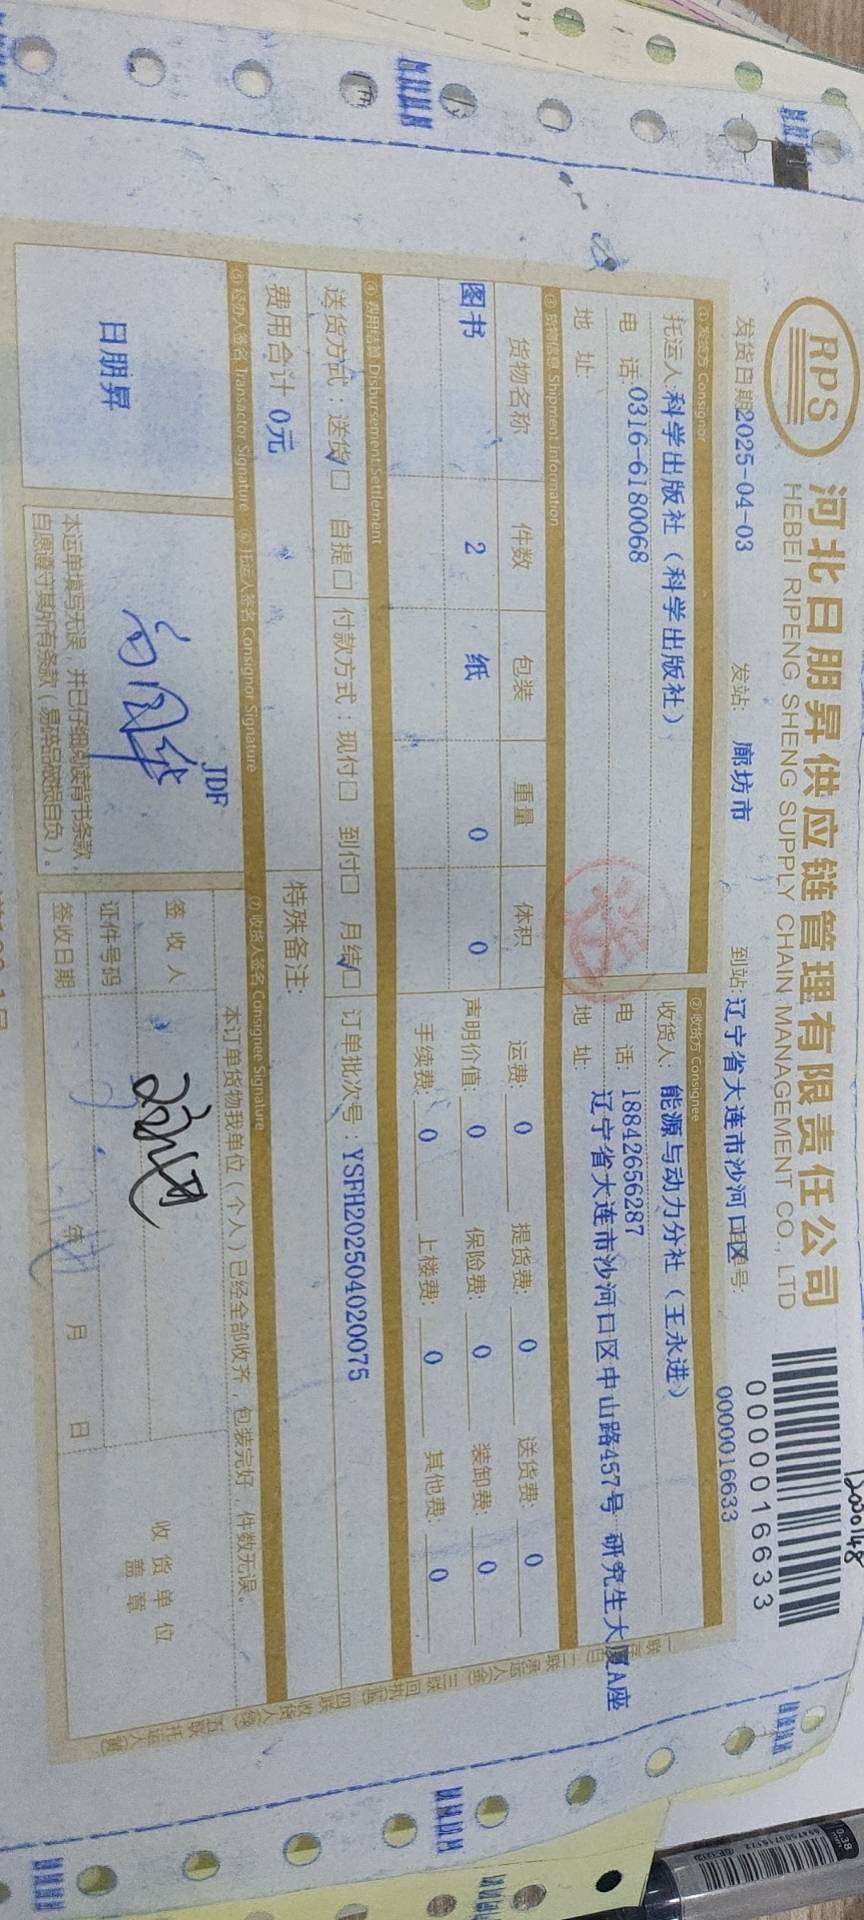 RPS
河北日朋昇供应链管理有限责任公司
HEBEI RIPENG SHENG SUPPLY CHAIN MANAGEMENT CO., LTD
0000016633
发货日期2025-04-03 发站: 廊坊市 到站:辽宁省大连市沙河口区 号:
0000016633
①发货方 Consignor ②收货方 Consignee
托运人:科学出版社（科学出版社） 收货人: 能源与动力分社（王永进）
电 话:0316-6180068 电 话: 18842656287
地 址: 地 址: 辽宁省大连市沙河口区中山路457号 研究生大厦A座
③货物信息 Shipment Information
货物名称 件数 包装 重量 体积 运费: 0 提货费: 0 送货费: 0
图书 2 纸 0 0 声明价值: 0 保险费: 0 装卸费: 0
手续费: 0 上楼费: 0 其他费: 0
④费用结算 Disbursement Settlement
送货方式：送货☑ 自提□ 付款方式：现付□ 到付□ 月结☑ 订单批次号：YSFH202504020075
费用合计 0元 特殊备注:
⑤经办人签名 Transactor Signature ⑥托运人签名 Consignor Signature ⑦收货人签名 Consignee Signature
日朋昇
JDF
本运单填写无误，并已仔细阅读背书条款，
自愿遵守其所有条款（易碎品破损自负）。
本订单货物我单位（个人）已经全部收齐，包装完好，件数无误。
签收人
证件号码
签收日期 年 月 日
收货单位
盖章